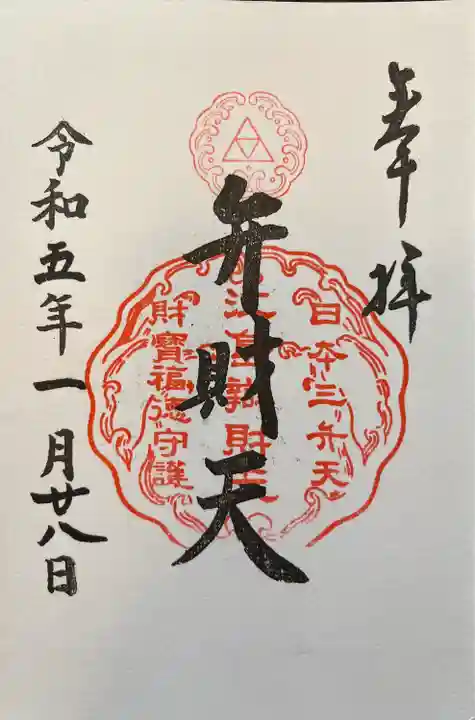 奉拝
日本三弁天
江島辨財天
財寶福徳守護
弁財天
令和五年一月廿八日